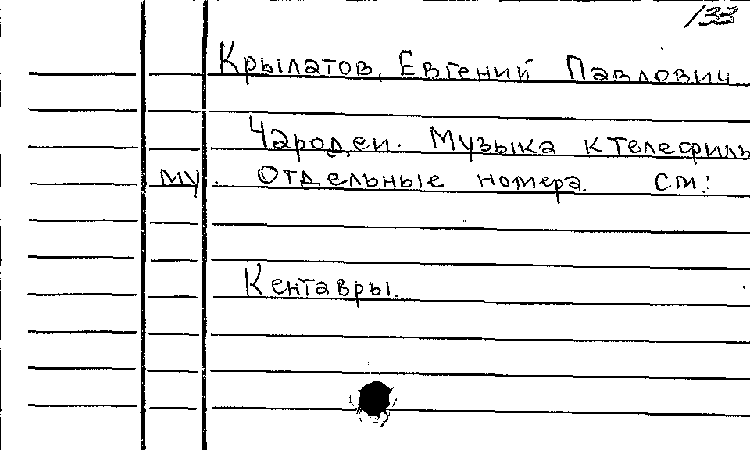 133
Крылатов, Евгений Павлович
Чародеи. Музыка к телефиль
му. Отдельные номера. См:
Кентавры.